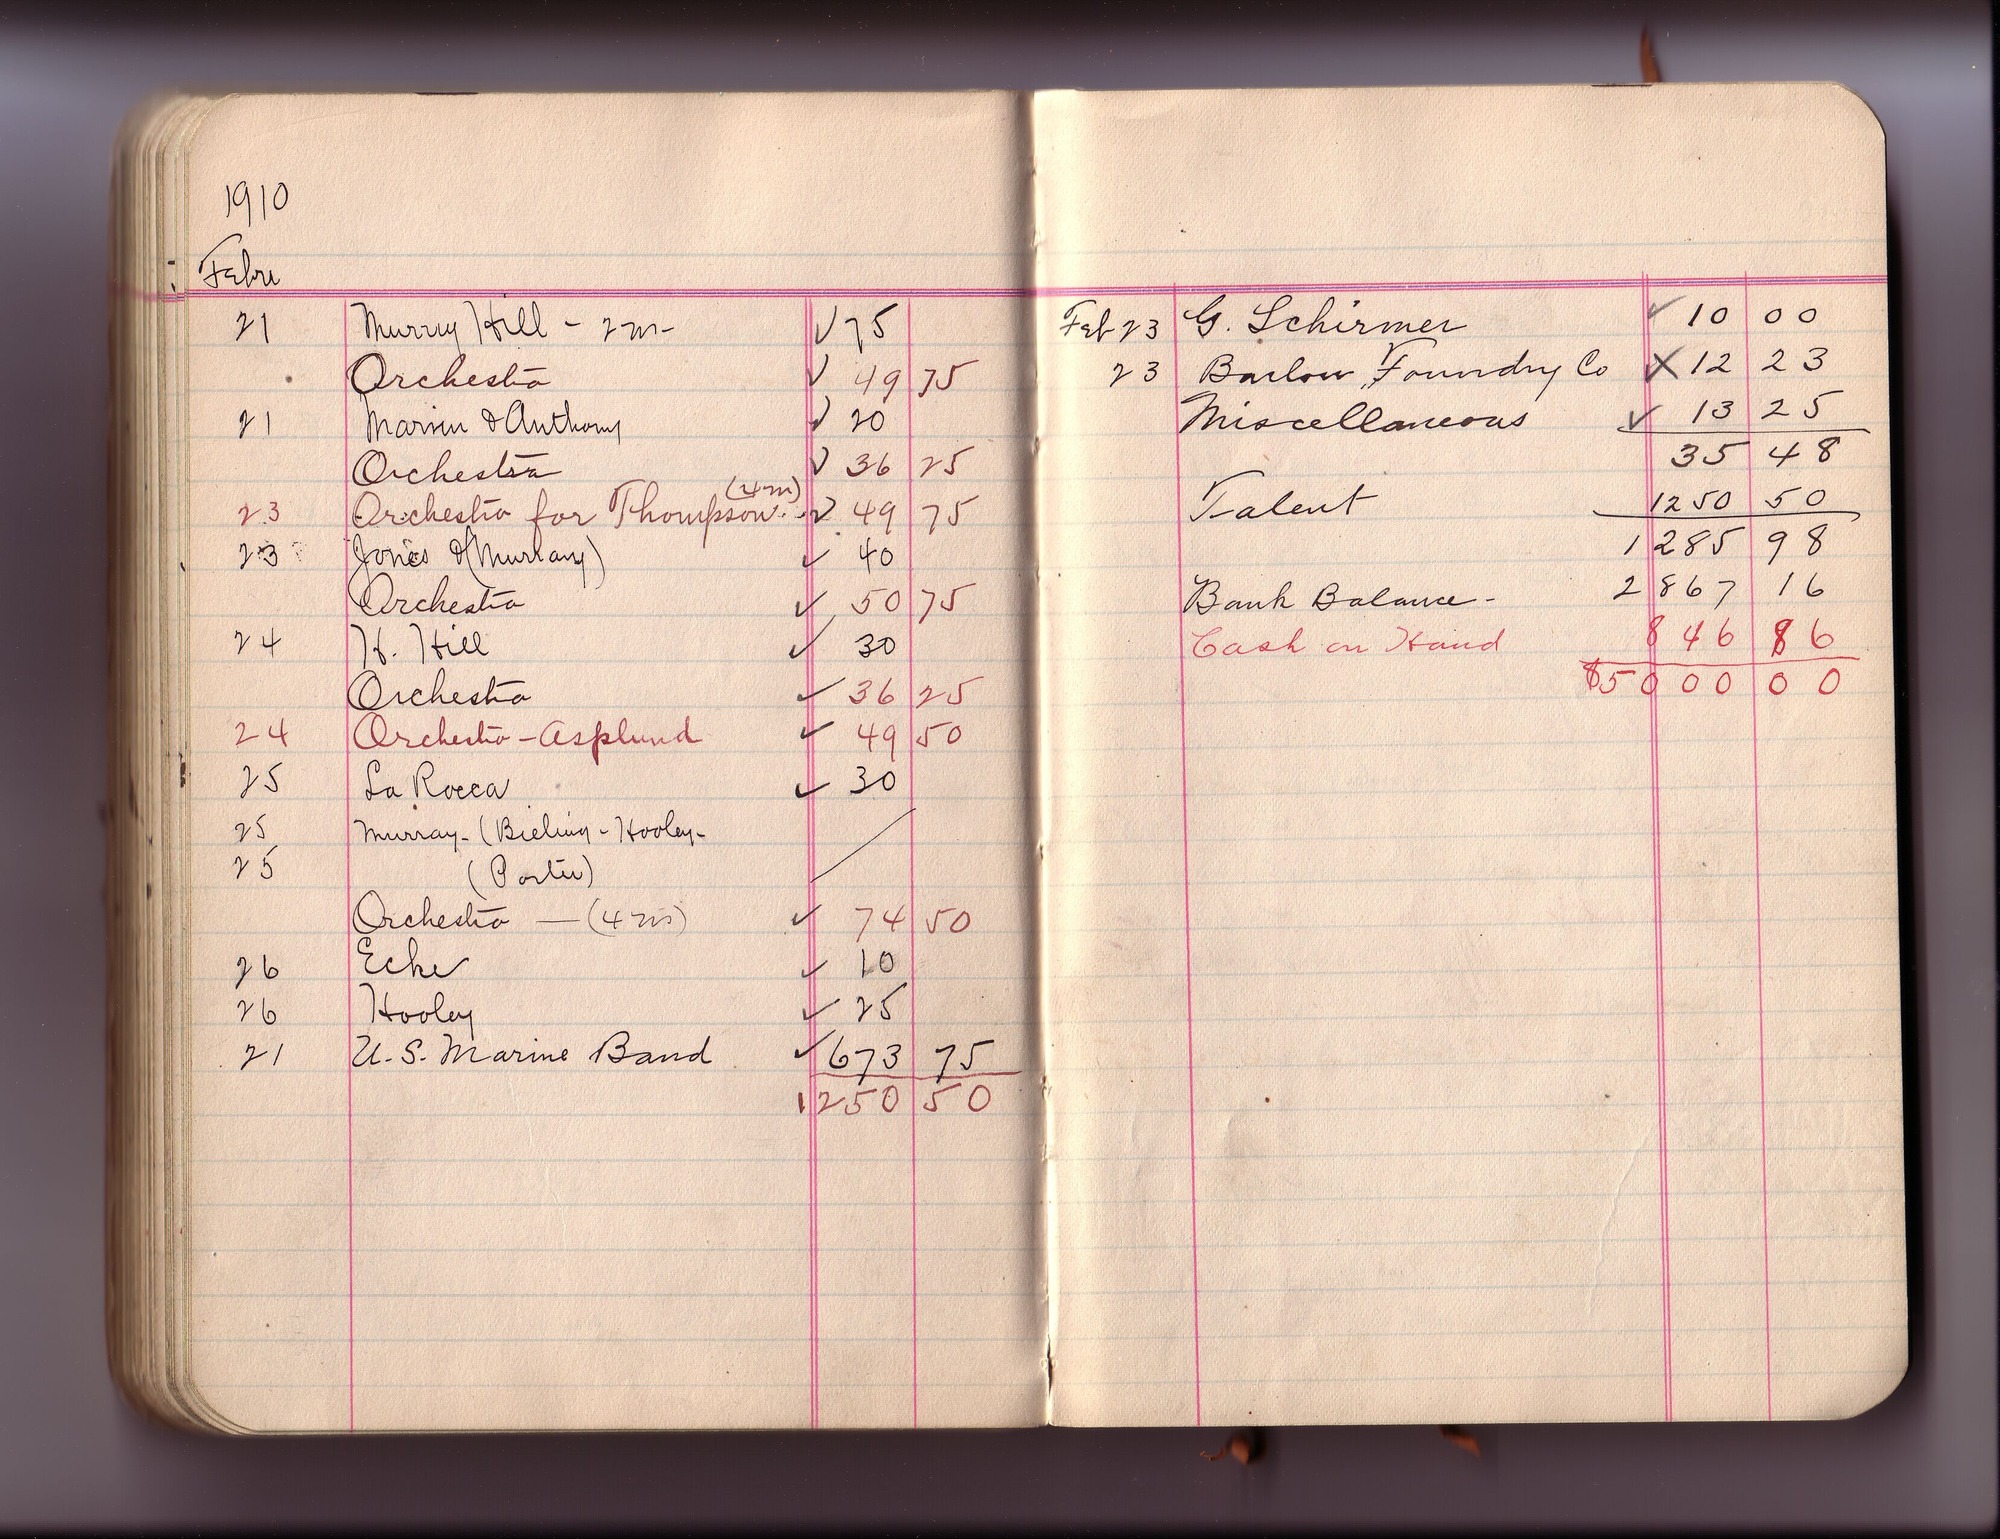 1910
Febru
21 Murry Hill - 2m- 75
Orchestra 49 75
21 Marvin & Anthony 20
Orchestra 36 25
(4m)
23 Orchestra for Thompson 49 75
23 Jones & (Murray) 40
Orchestra 50 75
24 H. Hill 30
Orchestra 36 25
24 Orchestra - Asplund 49 50
25 La Rocca 30
25 Murray - (Bieling - Hooley -
25 (Porter)
Orchestra — (4 m) 74 50
26 Ecke 10
26 Hooley 25
21 U.S. Marine Band 673 75
1250 50
Feb 23 G. Schirmer 10 00
23 Barlow Foundry Co X 12 23
Miscellaneous 13 25
35 48
Talent 1250 50
1285 98
Bank Balance - 2867 16
Cash on Hand 846 86
$5000 00